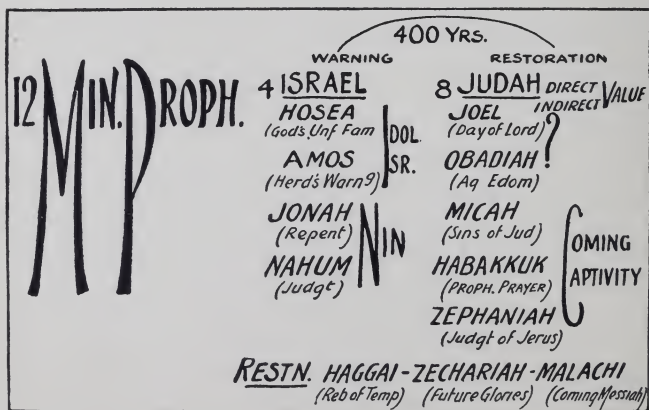 400 YRS.
WARNING
RESTORATION
12 MIN. PROPH.
4 ISRAEL
HOSEA
(God's Unf Fam
AMOS
(Herd's Warn9)
IDOL.
ISR.
JONAH
(Repent)
NAHUM
(Judgt)
NIN
8 JUDAH DIRECT INDIRECT VALUE
JOEL
(Day of Lord)
OBADIAH
(Ag Edom)
?
MICAH
(Sins of Jud)
HABAKKUK
(PROPH. PRAYER)
ZEPHANIAH
(Judgt of Jerus)
COMING
CAPTIVITY
RESTN. HAGGAI - ZECHARIAH - MALACHI
(Reb of Temp) (Future Glories) (Coming Messiah)